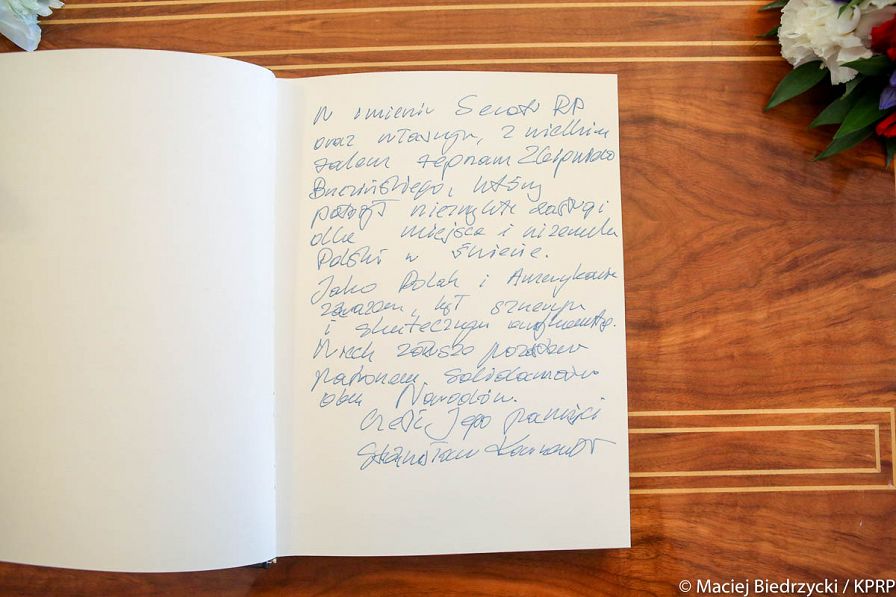 W imieniu Senatu RP
oraz własnym, z wielkim
żalem żegnam Zbigniewa
Brzezińskiego, który
położył niezwykłe zasługi
dla miejsca i wizerunku
Polski w świecie.
Jako Polak i Amerykanin
zarazem, był
i skutecznym
Niech zawsze pozostanie
patronem solidarności
obu Narodów.
Cześć Jego pamięci
Stanisław Karczewski
© Maciej Biedrzycki / KPRP